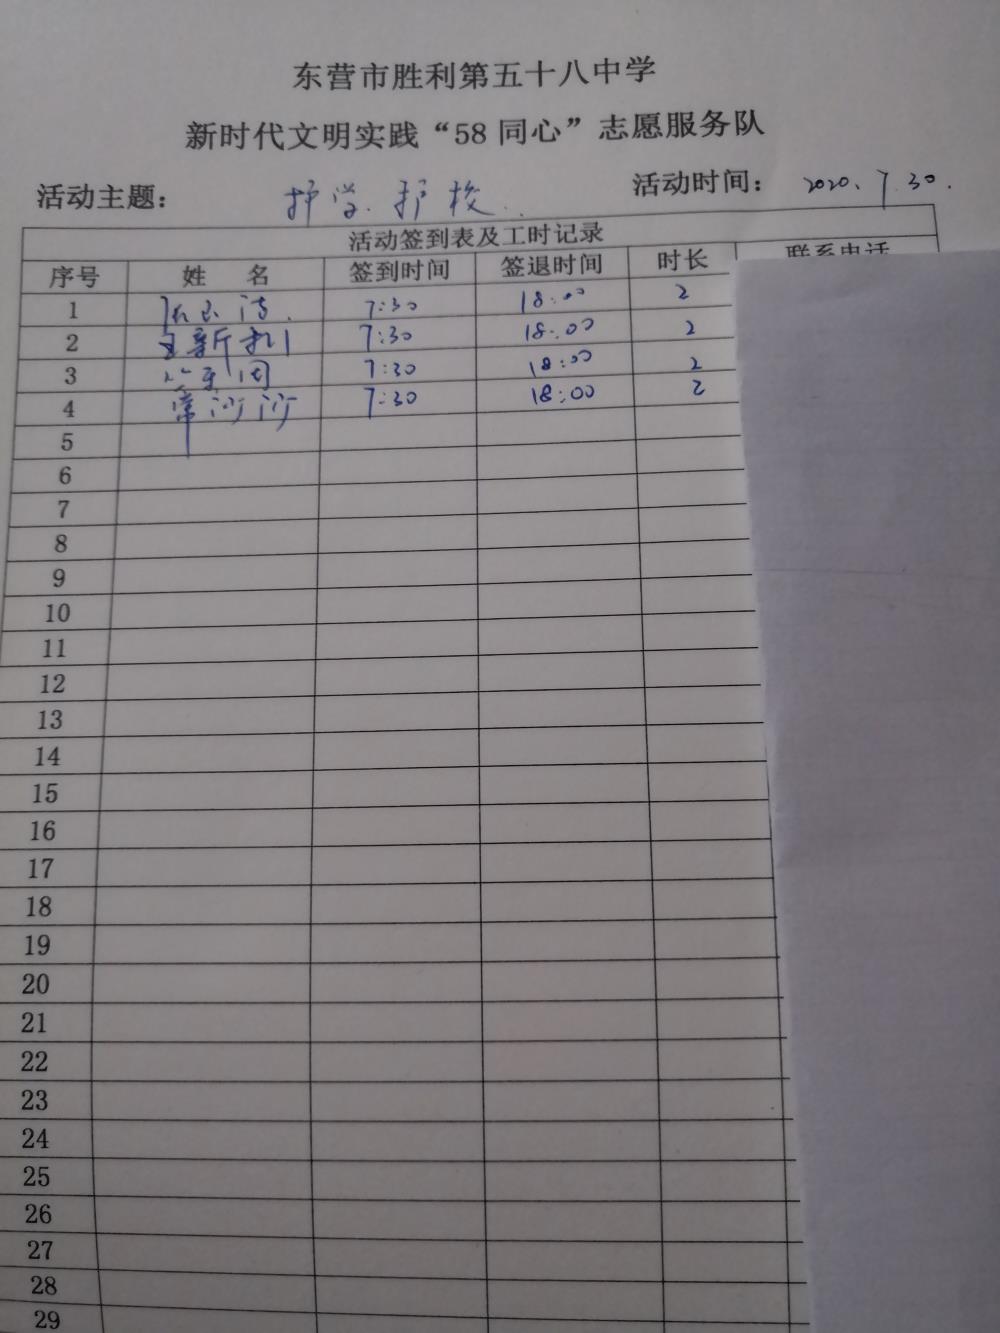 东营市胜利第五十八中学
新时代文明实践“58 同心”志愿服务队
活动主题： 护学.护校.. 活动时间： 2020.7.30.
活动签到表及工时记录
序号 姓 名 签到时间 签退时间 时长 联系电话
1 7:30 18:00 2
2 7:30 18:00 2
3 7:30 18:00 2
4 常沙沙 7:30 18:00 2
5
6
7
8
9
10
11
12
13
14
15
16
17
18
19
20
21
22
23
24
25
26
27
28
29